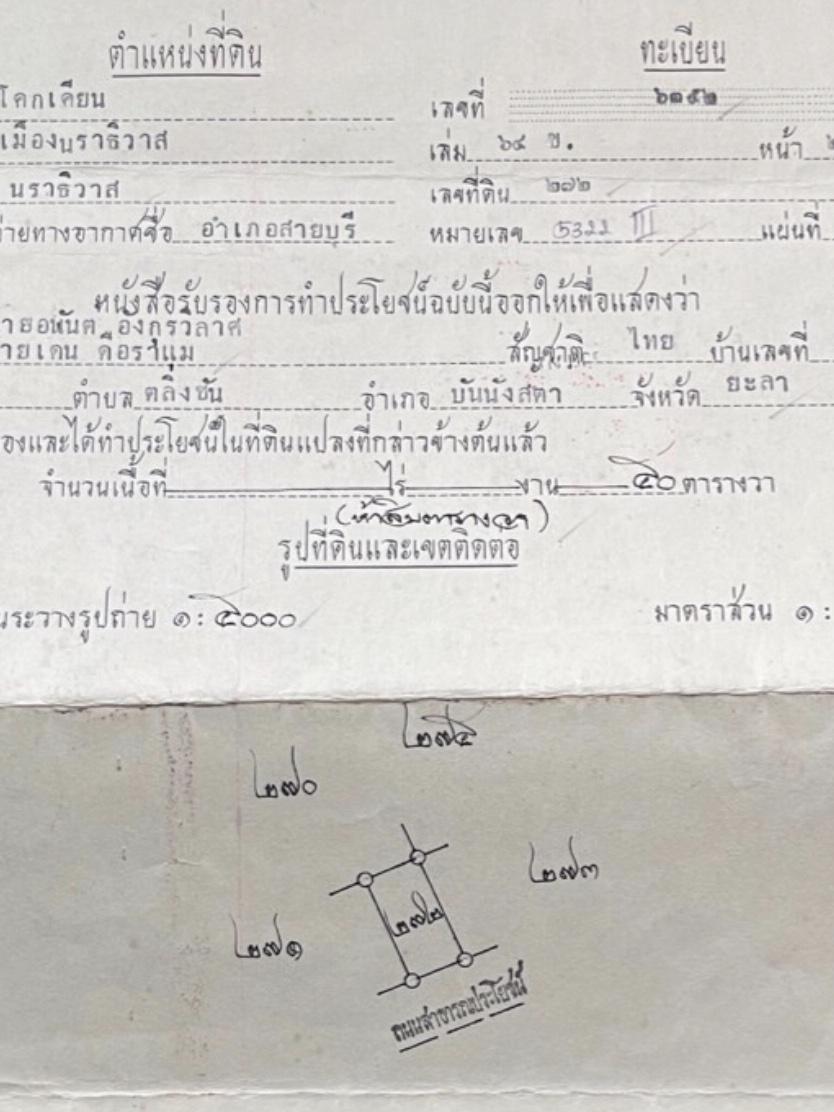 ตำแหน่งที่ดิน ทะเบียน
โคกเคียน เลขที่ ๖๑๕๒
เมืองนราธิวาส เล่ม ๖๔ ข. หน้า
นราธิวาส เลขที่ดิน ๒๗๒
ถ่ายทางอากาศชื่อ อำเภอสายบุรี หมายเลข 5322 III แผ่นที่
หนังสือรับรองการทำประโยชน์ฉบับนี้ออกให้เพื่อแสดงว่า
สัญชาติ ไทย บ้านเลขที่
ตำบล ตลิ่งชัน อำเภอ บันนังสตา จังหวัด ยะลา
องและได้ทำประโยชน์ในที่ดินแปลงที่กล่าวข้างต้นแล้ว
จำนวนเนื้อที่ ไร่ งาน ๕๐ ตารางวา
(ห้าสิบตารางวา)
รูปที่ดินและเขตติดต่อ
นระวางรูปถ่าย ๑ : ๕๐๐๐ มาตราส่วน ๑ :
๒๗๔
๒๗๐
๒๗๓
๒๗๒
๒๗๑
ถนนสาธารณประโยชน์